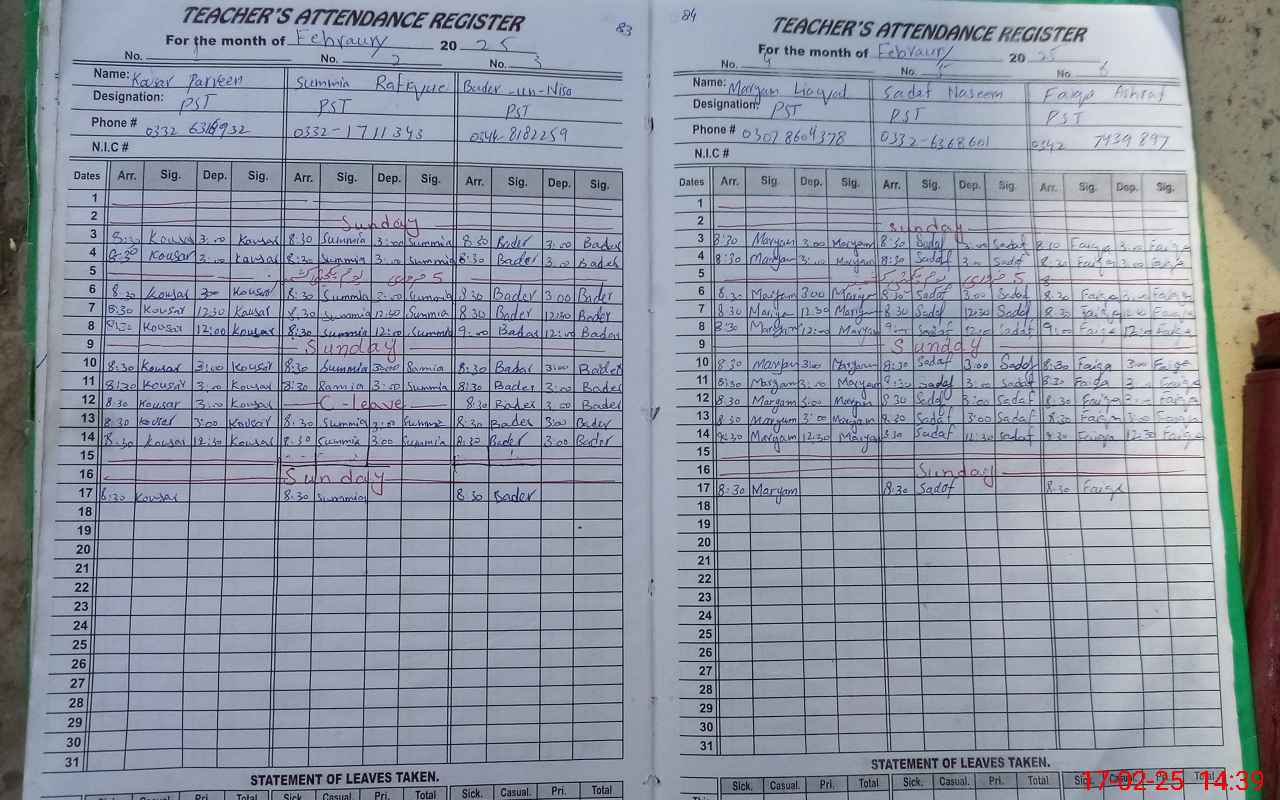 83
TEACHER'S ATTENDANCE REGISTER
For the month of Febraury 20 25
No. 1 No. 2 No. 3
Name: Kousar Parveen Summia Rafique Bader-un-Nisa
Designation: PST PST PST
Phone # 0332-1711343 0344-8182259
N.I.C #
Dates Arr. Sig. Dep. Sig. Arr. Sig. Dep. Sig. Arr. Sig. Dep. Sig.
1
2 Sunday
3 8:30 Kousar 3:00 Kousar 8:30 Summia 3:00 Summia 8:30 Bader 3:00 Bader
4 8:30 Kousar 3:00 Kousar 8:30 Summia 3:00 Summia 8:30 Bader 3:00 Bader
5 5 فروری
6 8:30 Kousar 3:00 Kousar 8:30 Summia 3:00 Summia 8:30 Bader 3:00 Bader
7 8:30 Kousar 12:30 Kousar 8:30 Summia 12:30 Summia 8:30 Bader 12:30 Bader
8 8:30 Kousar 12:00 Kousar 8:30 Summia 12:00 Summia 9:00 Bader 12:00 Bader
9 Sunday
10 8:30 Kousar 3:00 Kousar 8:30 Summia 3:00 Samia 8:30 Bader 3:00 Bader
11 8:30 Kousar 3:00 Kousar 8:30 Samia 3:00 Summia 8:30 Bader 3:00 Bader
12 8:30 Kousar 3:00 Kousar C-leave 8:30 Bader 3:00 Bader
13 8:30 Kousar 3:00 Kousar 8:30 Summia 3:00 Summia 8:30 Bader 3:00 Bader
14 8:30 Kousar 12:30 Kousar 8:30 Summia 3:00 Summia 8:30 Bader 3:00 Bader
15
16 Sunday
17 8:30 Kousar 8:30 Summia 8:30 Bader
18
19
20
21
22
23
24
25
26
27
28
29
30
31
STATEMENT OF LEAVES TAKEN.
Sick. Casual. Pri. Total Sick. Casual. Pri. Total Sick. Casual. Pri. Total
84
TEACHER'S ATTENDANCE REGISTER
For the month of Febraury 20 25
No. 4 No. 5 No. 6
Name: Maryam Liaqat Sadaf Naseem Faiqa Ashraf
Designation: PST PST PST
Phone # 0307 8604378 0332-6368601 0342 7439897
N.I.C #
Dates Arr. Sig. Dep. Sig. Arr. Sig. Dep. Sig. Arr. Sig. Dep. Sig.
1
2 Sunday
3 8:30 Maryam 3:00 Maryam 8:30 Sadaf 3:00 Sadaf 8:30 Faiqa 3:00 Faiqa
4 8:30 Maryam 3:00 Maryam 8:30 Sadaf 3:00 Sadaf 8:30 Faiqa 3:00 Faiqa
5 5 فروری
6 8:30 Maryam 3:00 Maryam 8:30 Sadaf 3:00 Sadaf 8:30 Faiqa 3:00 Faiqa
7 8:30 Maryam 12:30 Maryam 8:30 Sadaf 12:30 Sadaf 8:30 Faiqa Faiqa
8 8:30 Maryam 12:00 Maryam 9:00 Sadaf 12:00 Sadaf 9:00 Faiqa 12:00 Faiqa
9 Sunday
10 8:30 Maryam 3:00 Maryam 8:30 Sadaf 3:00 Sadaf 8:30 Faiqa 3:00 Faiqa
11 8:30 Maryam 3:00 Maryam 8:30 Sadaf 3:00 Sadaf 8:30 Faiqa Faiqa
12 8:30 Maryam 3:00 Maryam 8:30 Sadaf 3:00 Sadaf 8:30 Faiqa Faiqa
13 8:30 Maryam 3:00 Maryam 8:30 Sadaf 3:00 Sadaf 8:30 Faiqa 3:00 Faiqa
14 8:30 Maryam 12:30 Maryam 8:30 Sadaf 12:30 Sadaf 8:30 Faiqa 12:30 Faiqa
15
16 Sunday
17 8:30 Maryam 8:30 Sadaf 8:30 Faiqa
18
19
20
21
22
23
24
25
26
27
28
29
30
31
STATEMENT OF LEAVES TAKEN.
Sick. Casual. Pri. Total Sick. Casual. Pri. Total Sick. Casual. Pri. Total
17-02-25 14:39